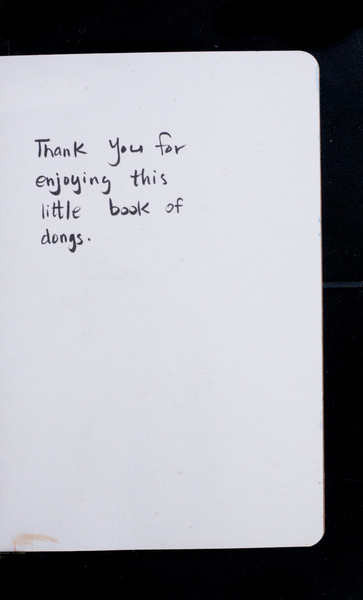 Thank you for
enjoying this
little book of
dongs.